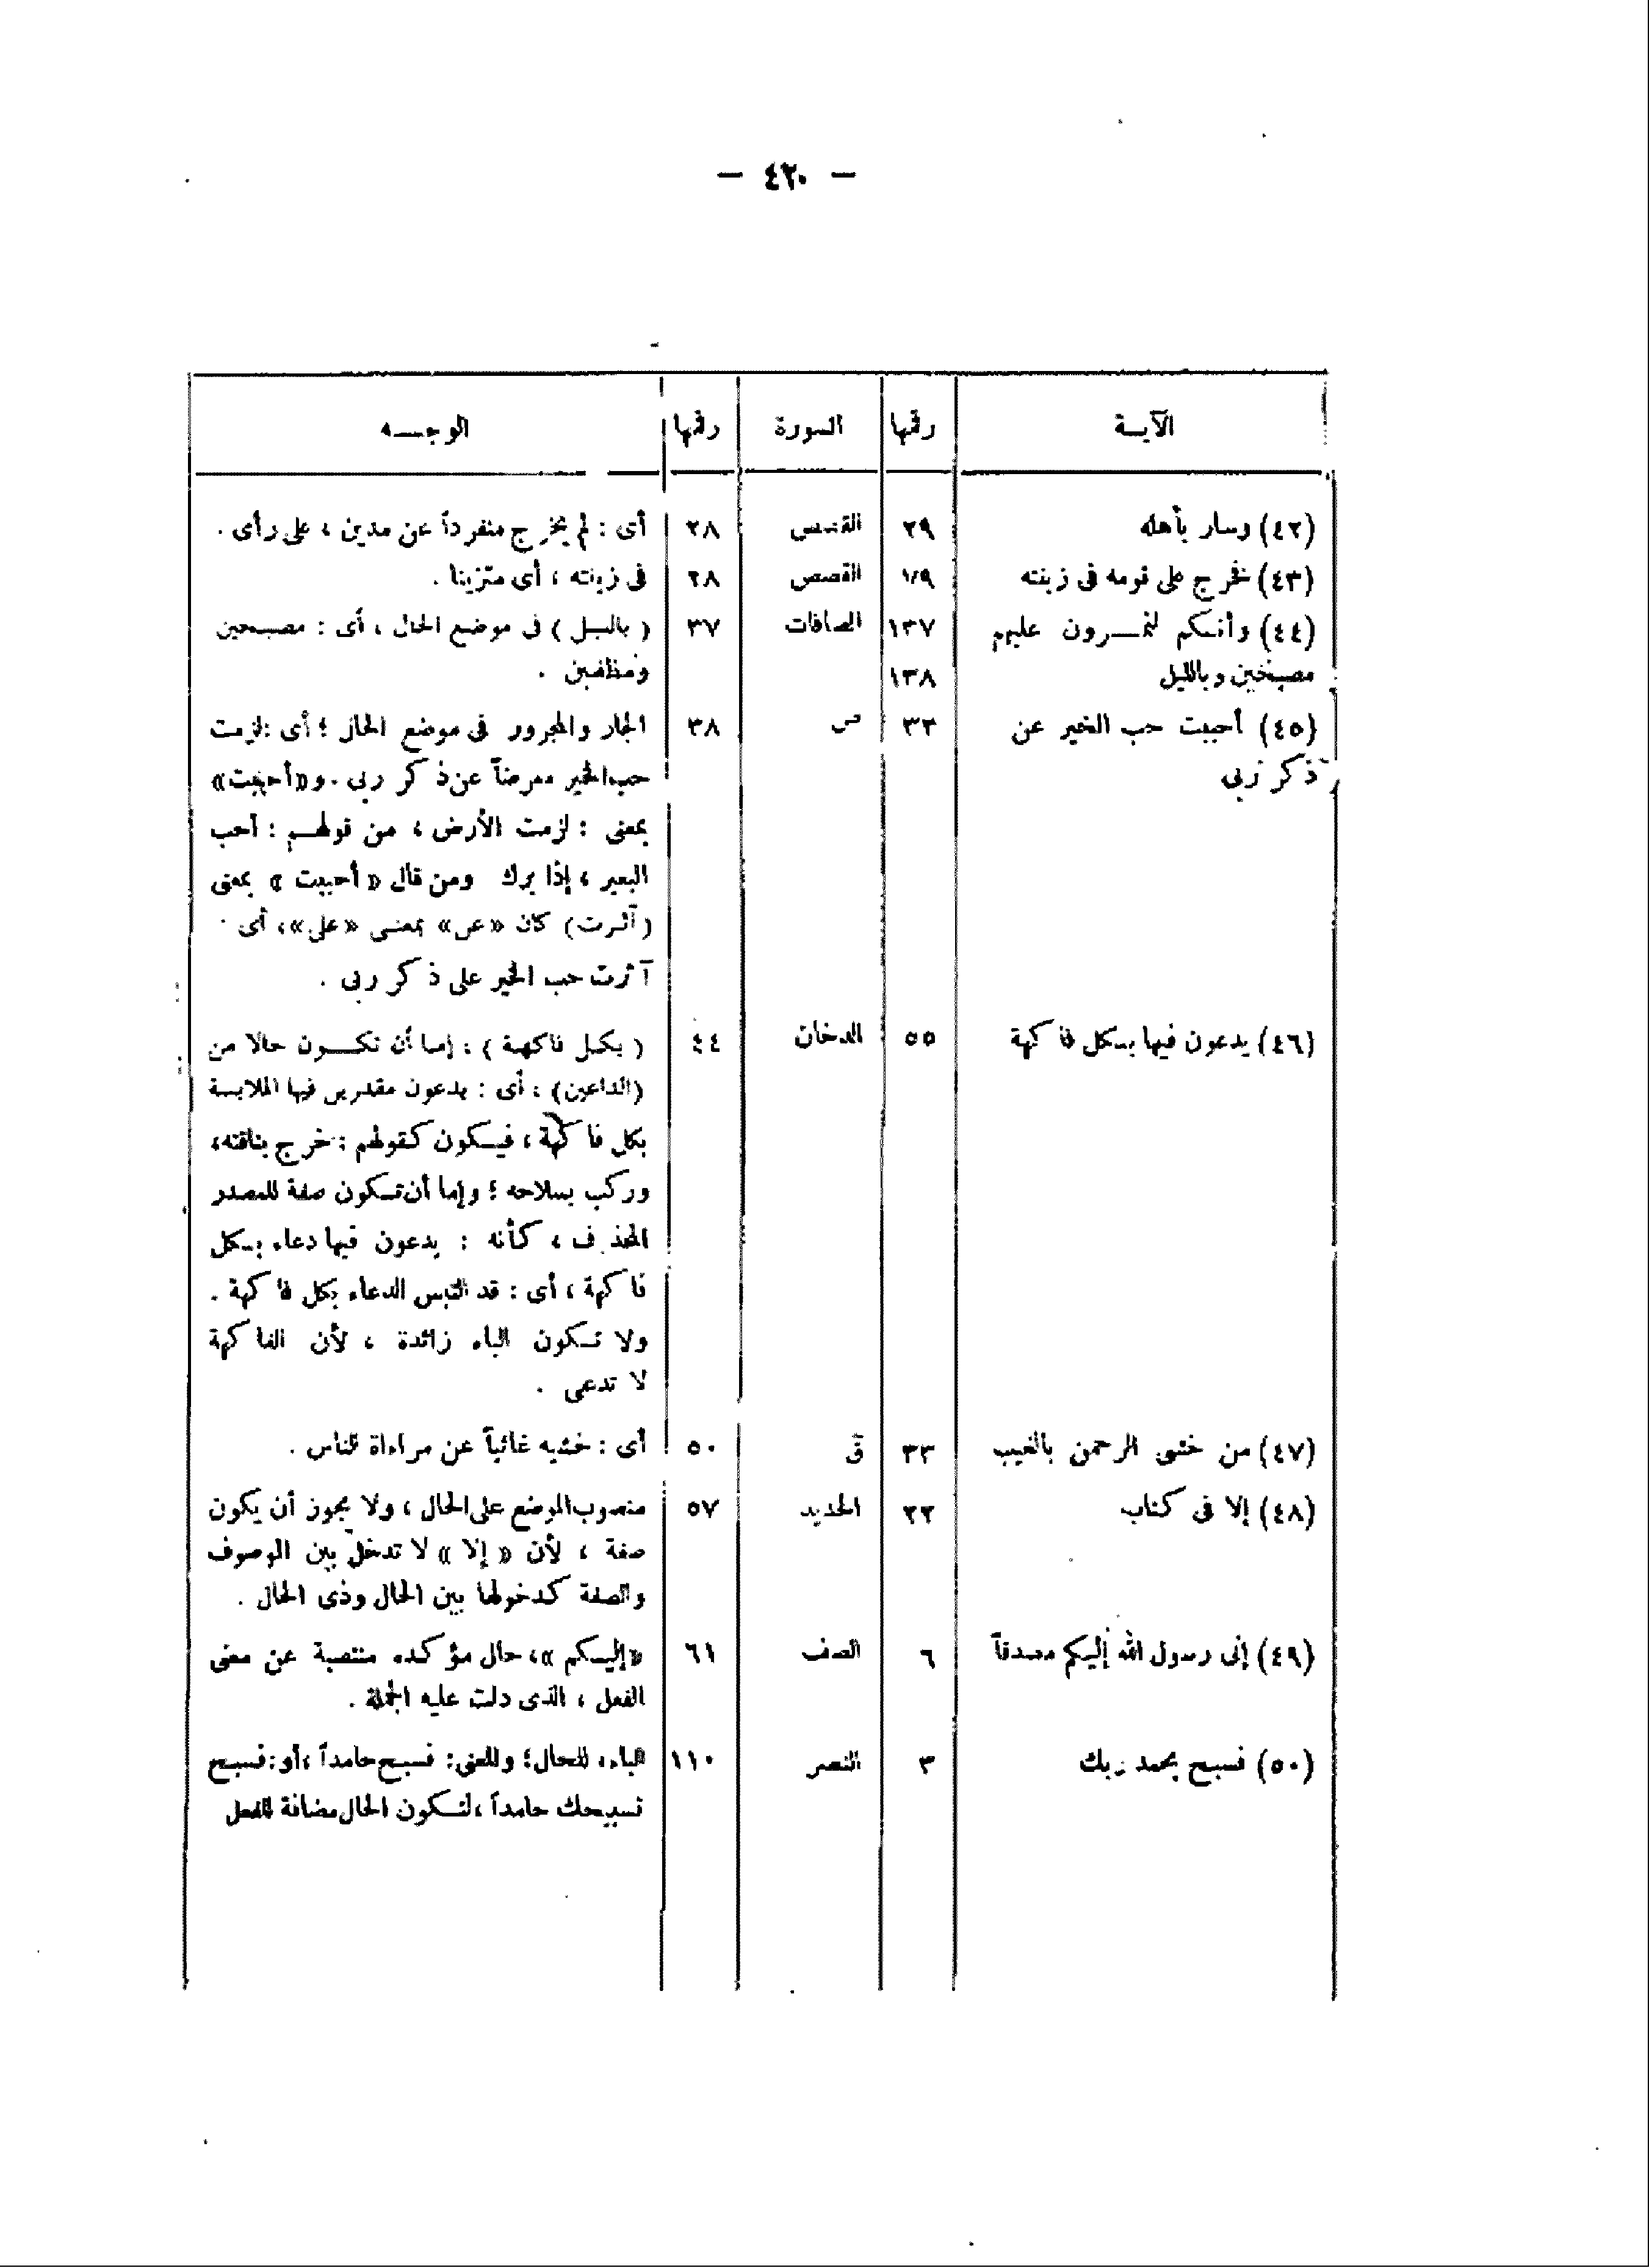 — ٤٢٠ —
الآيـة رقمها السورة رقمها الوجـــه
(٤٢) وسار بأهله ٢٩ القصص ٢٨ أى : لم يخرج منفرداً عن مدين ، على رأى .
(٤٣) فخرج على قومه فى زينته ٧٩ القصص ٢٨ فى زينته ، أى متزينا .
(٤٤) وأنـكم لتمــرون عليهم ١٣٧ الصافات ٣٧ ( بالليل ) فى موضع الحال ، أى : مصبحين
مصبحين وبالليل ١٣٨ ومظلمين .
(٤٥) أحببت حب الخير عن ٣٣ ص ٣٨ الجار والمجرور فى موضع الحال ؛ أى : لزمت
ذكر ربى حب الخير معرضاً عن ذكر ربى . و«أحببت»
بمعنى : لزمت الأرض ، من قولهـم : أحب
البعير ، إذا برك ومن قال « أحببت » بمعنى
( آثـرت) كان «عن» بمعنـى «على»، أى
آثرت حب الخير على ذكر ربى .
(٤٦) يدعون فيها بـكل فاكهة ٥٥ الدخان ٤٤ ( بكـل فاكهـة ) ، إمـا أن تكــون حالا من
(الداعين) ، أى : يدعون مقدرين فيها الملابسة
بكل فاكهة ، فيـكون كقولهم : خرج بناقته،
وركب بسلاحه ؛ وإما أن تـكون صفة للمصدر
المحذوف ، كأنه : يدعون فيها دعاء بـكل
فاكهة ، أى : قد التبس الدعاء بكل فاكهة .
ولا تـكون الباء زائدة ، لأن الفاكهة
لا تدعى .
(٤٧) من خشى الرحمن بالغيب ٣٣ ق ٥٠ أى : خشيه غائباً عن مراءاة الناس .
(٤٨) إلا فى كتاب ٢٢ الحديد ٥٧ منصوب الموضع على الحال ، ولا يجوز أن يكون
صفة ، لأن « إلا » لا تدخل بين الموصوف
والصفة كدخولها بين الحال وذى الحال .
(٤٩) إنى رسول الله إليكم مصدقاً ٦ الصف ٦١ «إليـكم »، حال مؤكده منتصبة عن معنى
الفعل ، الذى دلت عليه الجملة .
(٥٠) فسبح بحمد ربك ٣ النصر ١١٠ الباء، للحال؛ والمعنى: فسبح حامداً ،أو: فسبح
تسبيحك حامداً ،لتـكون الحال مضافة للفعل